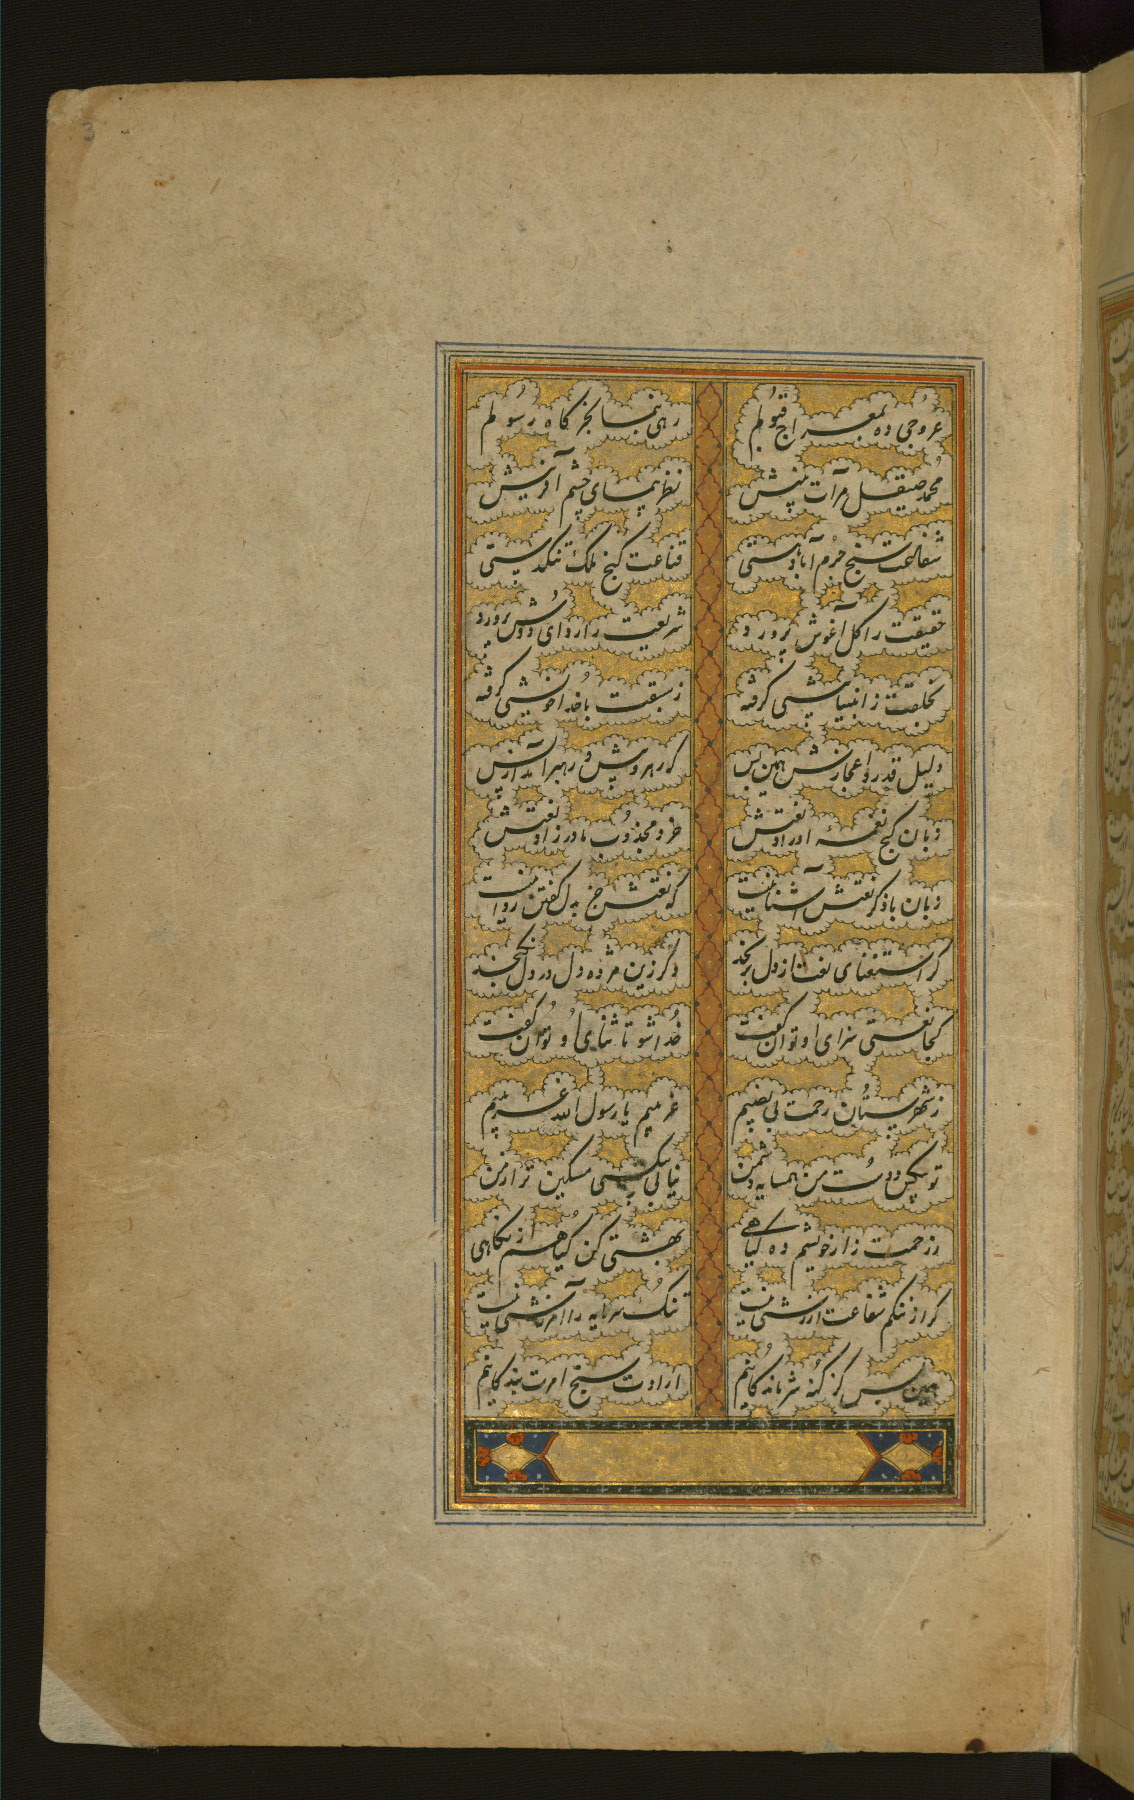 3
عروجی ده بمعراج قبولم رهی بنما بخرگاه رسولم
محمد صیقل مرآت بینش نظر پیمای چشم آفرینش
شفاعت سنج جرم آباد هستی قناعت گنج ملک تنگدستی
حقیقت را گل آغوش پرورد شریعت را ردای دوش پرورد
بخلقت ز انبیا پیشی گرفته ز سبقت با خدا خویشی گرفته
دلیل قدر و اعجازش همین بس که رهرو پیش و رهبر آمد از پس
زبان گنج نغمهٔ اوراد نعتش خرد مجذوب مادرزاد نعتش
زبان با ذکر نعتش آشنا نیست که نعتش جز بدل گفتن روا نیست
گر استغنای نعت از دل برنجد دگر زین مژده دل در دل نگنجد
کجا نعتی سزای او توان گفت خدا شو تا ثنای او توان گفت
ز شهرستان رحمت بی نصیبم غریبم یا رسول الله غریبم
تو بیکس دوست من همسایه دشمن نیابی بیکسی مسکین تر از من
ز رحمت زار خویشم ده گیاهی بهشتی کن گیاهم از نگاهی
گر از ننگم شفاعت ارزشی نیست تنک سرمایه را آمرزشی نیست
همین بس کز گنه شرمندگانیم ارادت سنج امرت بندگانیم